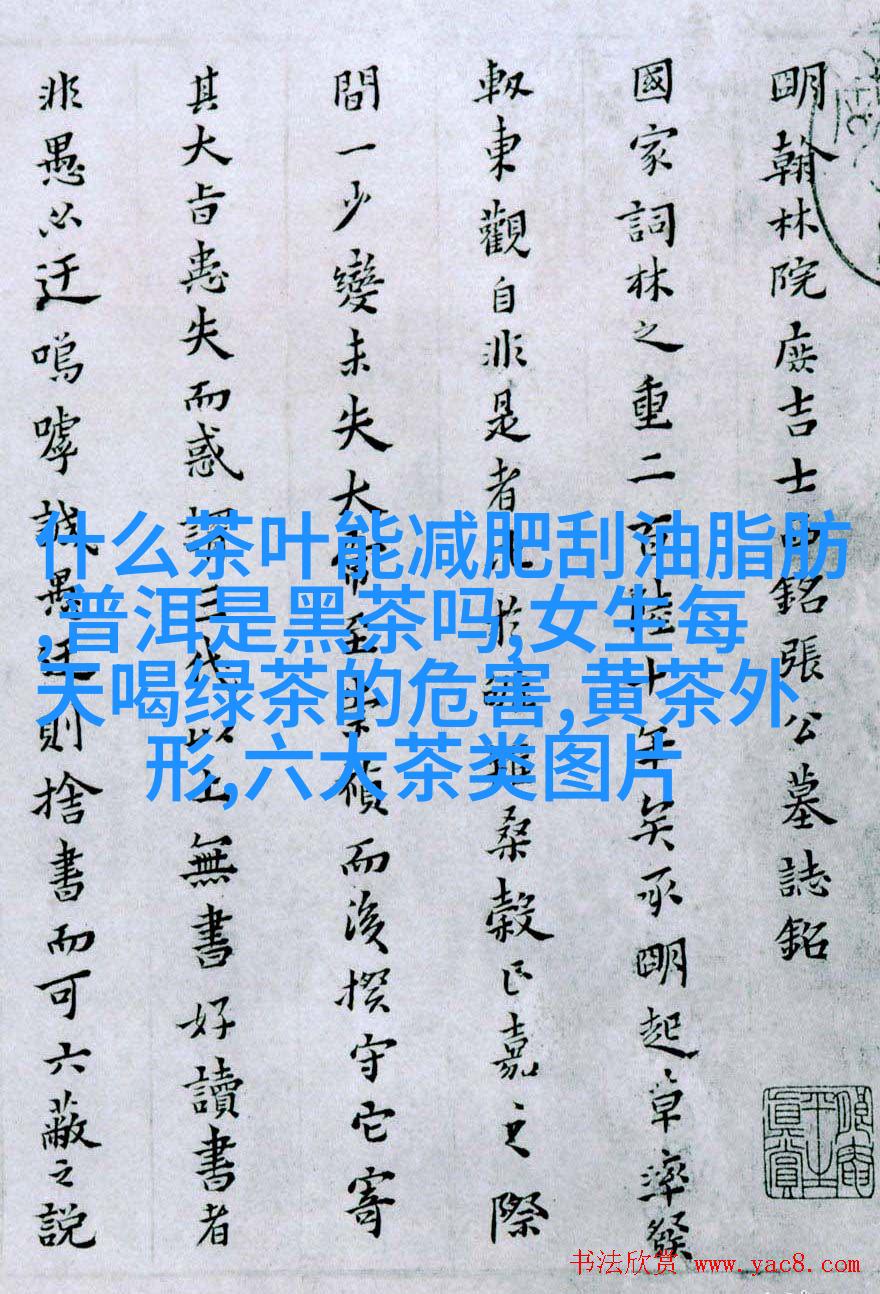 明翰林院庶吉士西銘張公墓誌銘
國家詞林之重二百陸十年矣承明起草率發
軔東觀自非是者
桑穀正嘉之際
間一少變未失大
禎而後揆守它寄
其大旨患失而惑謂三代以上無書好讀書者
非愚必迂嗚嘑誠愚迂則捨書而可六蔽之説
什么茶叶能减肥刮油脂肪
,普洱是黑茶吗,女生每
天喝绿茶的危害,黄茶外
形,六大茶类图片
真賞
书法欣赏 www.yac8.com